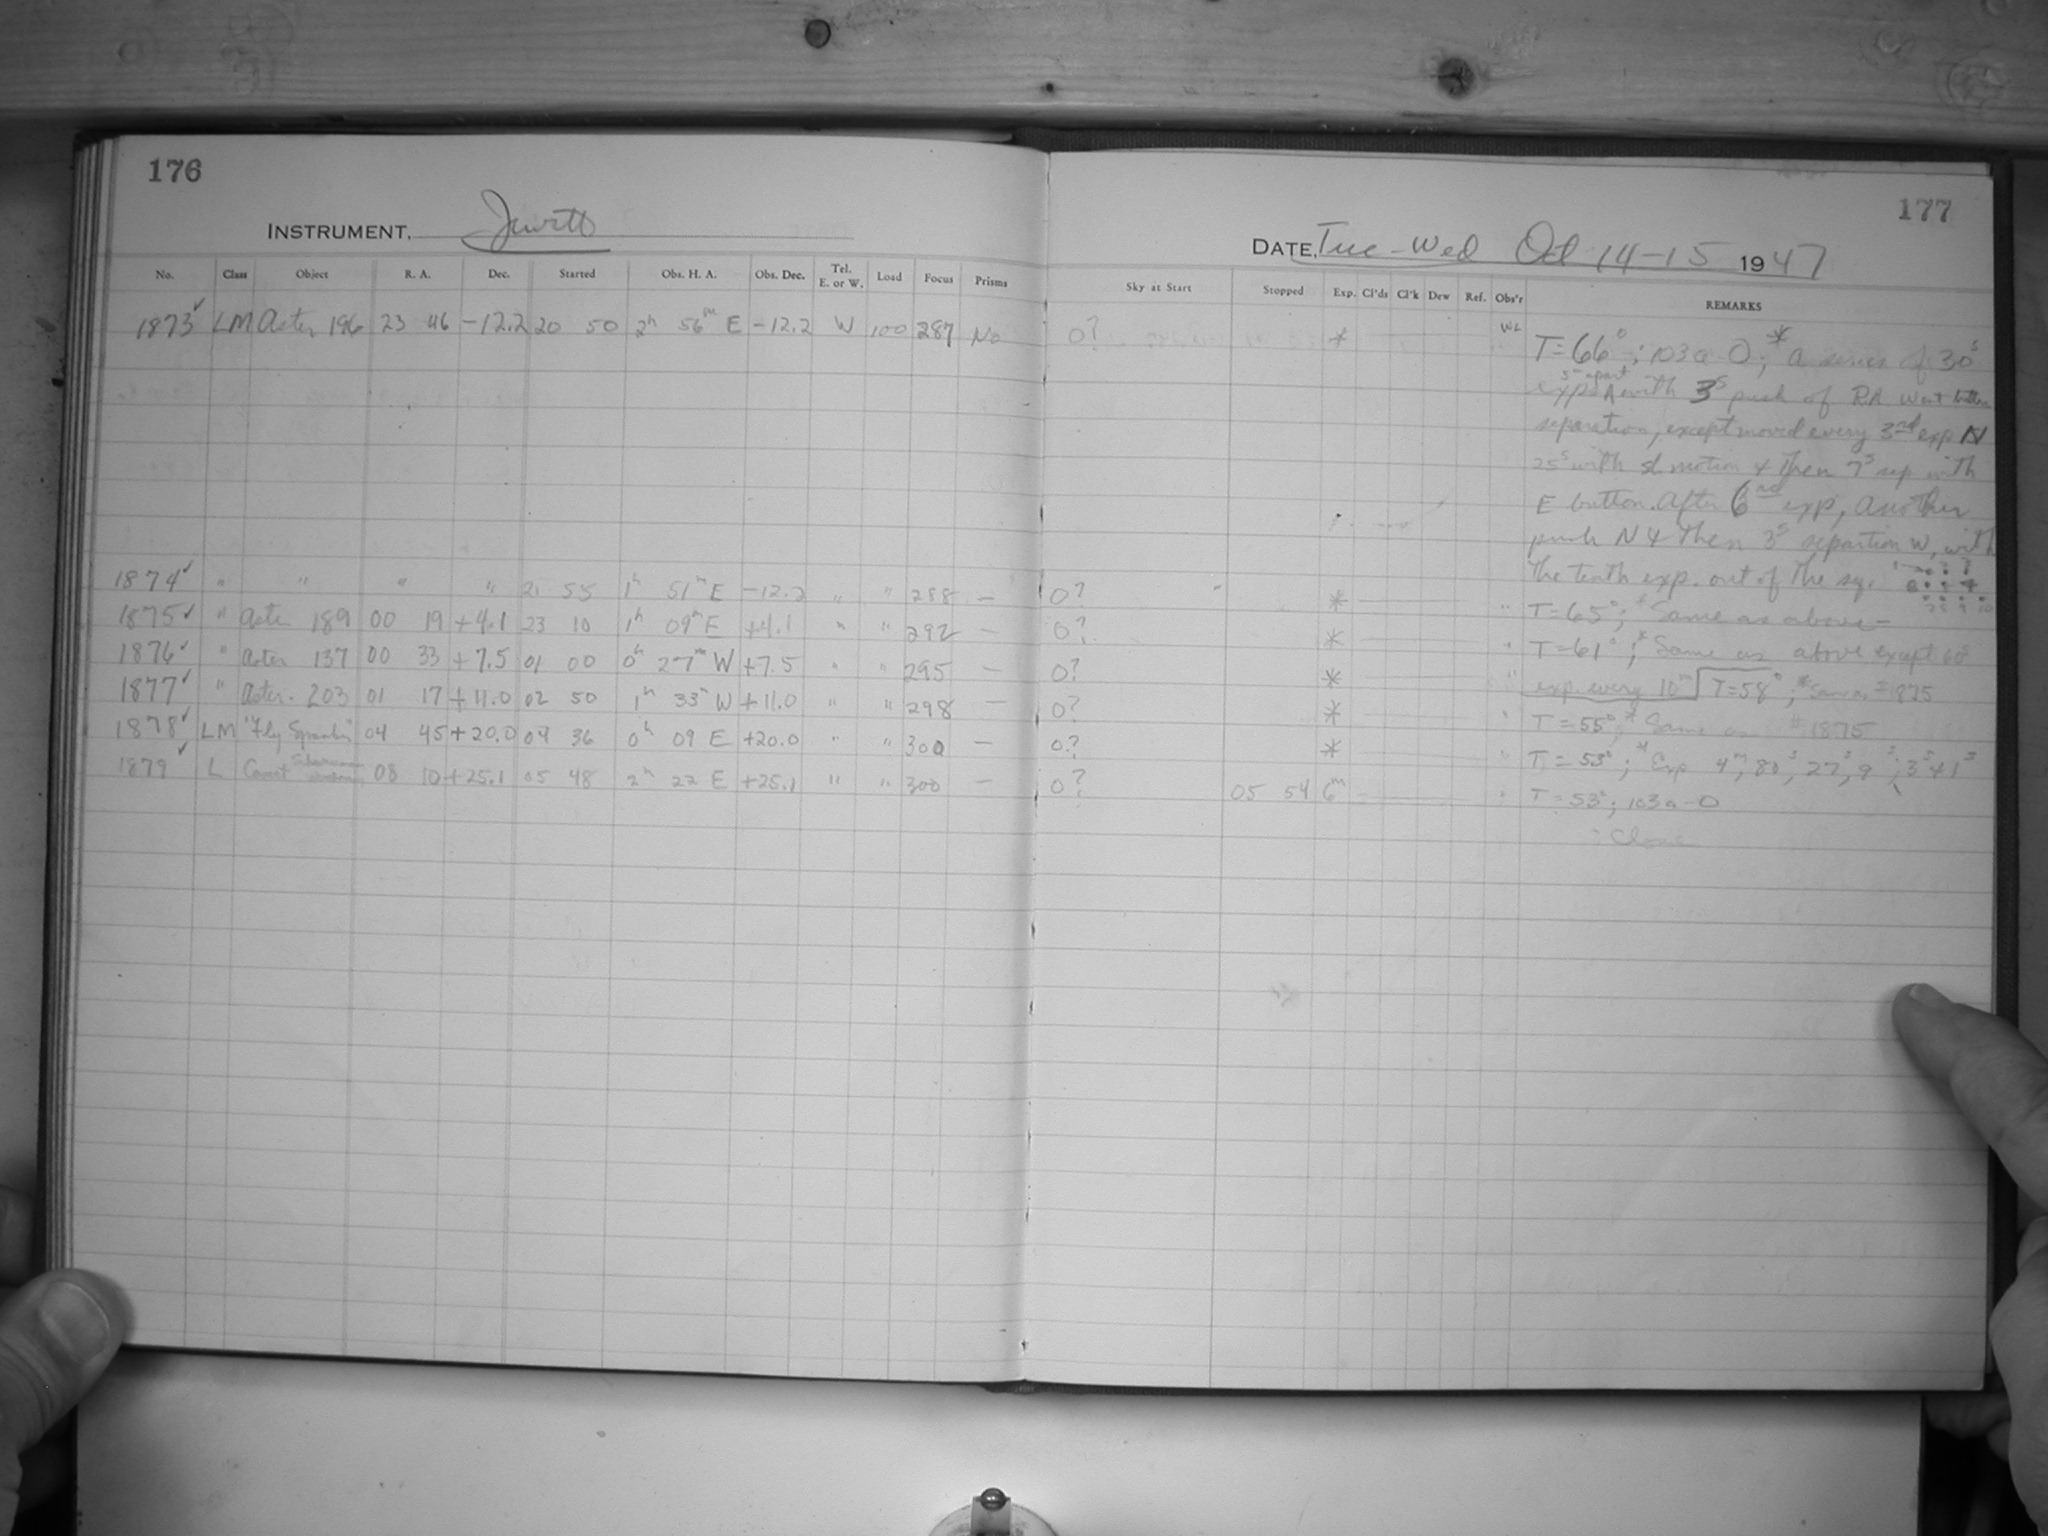 176
INSTRUMENT, Jewett
No. Class Object R. A. Dec. Started Obs. H. A. Obs. Dec. Tel. E. or W. Load Focus Prisms
1873 ✓ LM Aster 196 23 46 -12.2 20 50 2h 56m E -12.2 W 100 287 No
1874 ✓ " " " " 21 55 1h 51m E -12.2 " " 288 —
1875 ✓ " Aster 189 00 19 +4.1 23 10 1h 09m E +4.1 " " 292 —
1876 ✓ " Aster 137 00 33 +7.5 01 00 0h 27m W +7.5 " " 295 —
1877 ✓ " Aster. 203 01 17 +11.0 02 50 1h 33m W +11.0 " " 298 —
1878 ✓ LM 04 45 +20.0 04 36 0h 09 E +20.0 " " 300 —
1879 ✓ L Comet 08 10 +25.1 05 48 2h 22 E +25.1 " " 300 —
177
DATE, Tue-Wed Oct 14-15 1947
Sky at Start Stopped Exp. Cl'ds Cl'k Dew Ref. Obs'r REMARKS
0? * WL T=66°; 103a-O; * a series of 30s
exps 5m apart with 3s push of RA West button
separation, except moved every 3rd exp N
25s with sl motion & then 7s sep with
E button. After 6th exp, another
push N & then 3s separtion W, with
the tenth exp. out of the sq.
0? * " T=65°; * Same as above—
0? * " T=61°; * Same as above except 60s
exp. every 10m
0? * " T=58°; * Same as #1875
0? * " T=55°; * Same as #1875
0? * " T=53°; * Exp 4m, 80s, 27s, 9s, 3s & 1s
0? 05 54 6m " T=53°; 103a-O
Close